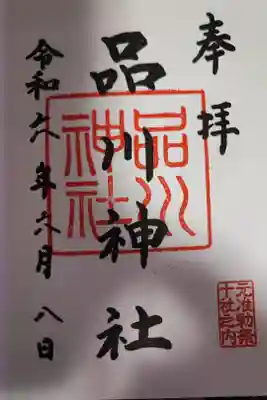 奉拝
品川神社
品川神社
元准勅祭
十社之内
令和六年六月八日